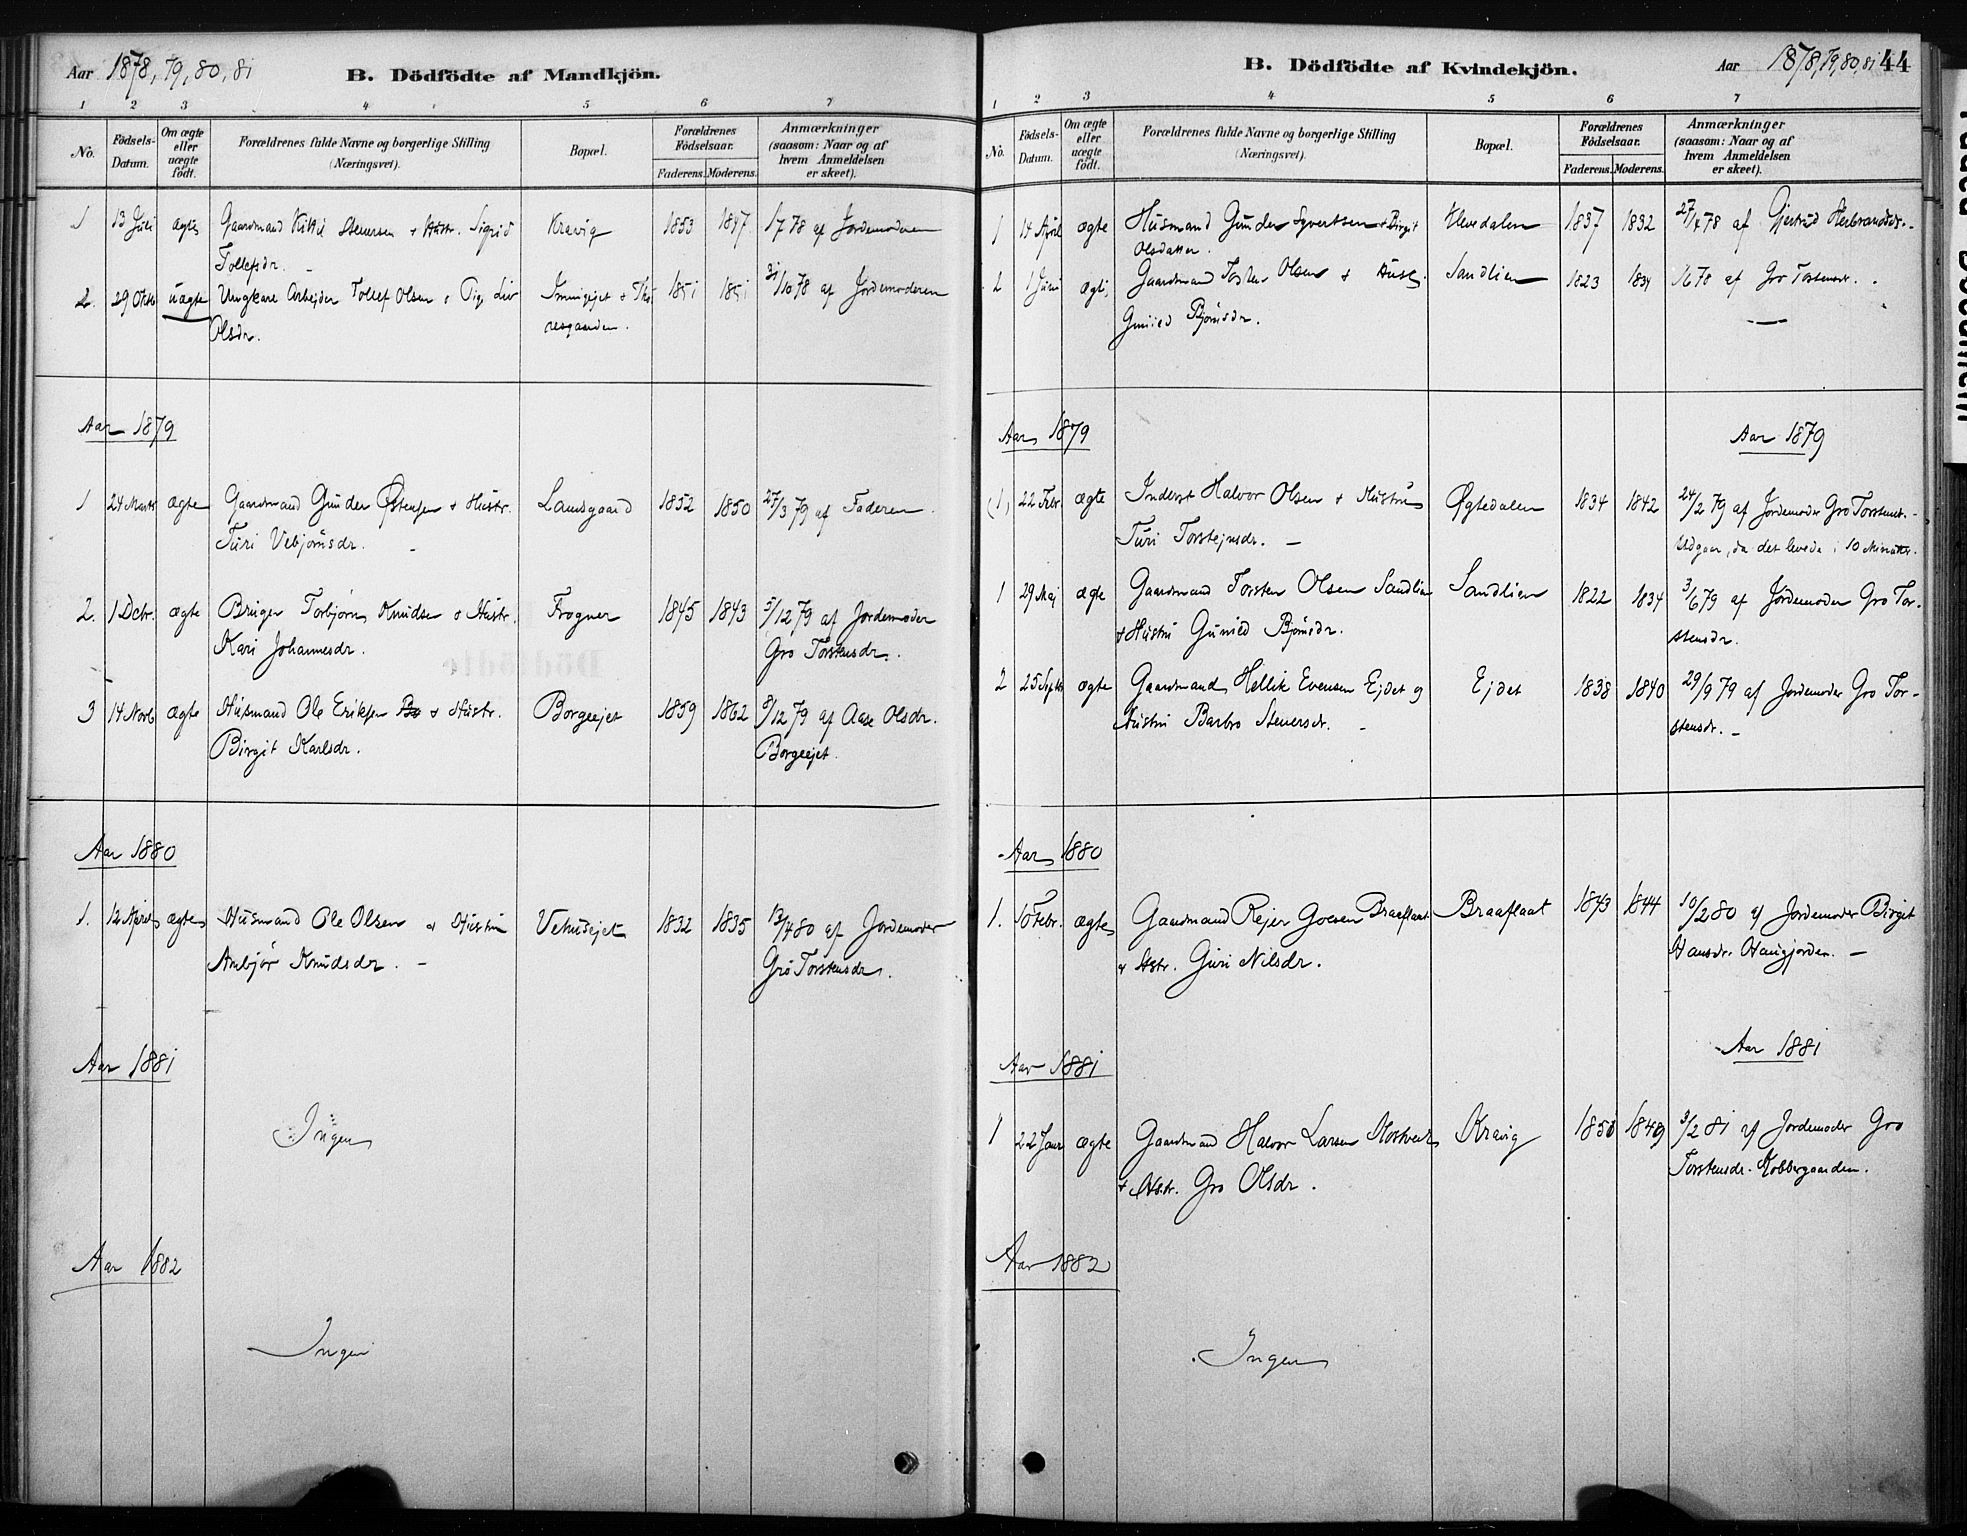 Aar 1878, 79, 80, 81
B. Dödfödte af Mandkjön.
1 2 3 4 5 6 7
No.
Födsels-Datum.
Om ægte eller uægte födt.
Forældrenes fulde Navne og borgerlige Stilling (Næringsvei).
Bopæl.
Forældrenes Födselsaar.
Faderens. Moderens.
Anmærkninger (saasom: Naar og af hvem Anmeldelsen er skeet).
1 13 Juli ægte Gaardmand Kittil Steversen + Hustr. Sigrid Kravig 1853 1847 1/7 78 af Jordemoderen
Tollefsdr.
2. 29 Oktb uægte Ungkarl Arbejder Tollef Olsen & Pig. Liv 1851 1851 31/10 78 af Jordemoderen
Olsdr.
Aar 1879
1 24 Marts ægte Gaardmand Gunder Østensen + Hustr. Landsgaard 1852 1850 27/3 79 af Faderen.
Turi Vebjørnsdr.
2. 1 Dcbr. ægte Bruger Torbjørn Knudsen & Hustr. Frogner 1845 1843 5/12 79 af Jordemoder
Kari Johannesdr. Gro Torstensdr.
3 14 Novb ægte Husmand Ole Eriksen + Hustr. Borgeejet 1859 1862 8/12 79 af Aase Olsdr.
Birgit Karlsdr. Borgeejet.
Aar 1880
1. 12 April ægte Husmand Ole Olsen & Hustru Vehusejet 1832 1835 13/4 80 af Jordemoder
Ambjør Knudsdr. Gro Torstensdr.
Aar 1881
Ingen
Aar 1882
Ingen
B. Dödfödte af Kvindekjön.
Aar 1878, 79, 80, 81 44
1 2 3 4 5 6 7
No.
Födsels-Datum.
Om ægte eller uægte födt.
Forældrenes fulde Navne og borgerlige Stilling (Næringsvei).
Bopæl.
Forældrenes Födselsaar.
Faderens. Moderens.
Anmærkninger (saasom: Naar og af hvem Anmeldelsen er skeet).
1 14 April ægte Husmand Gunder Syvertsen + Birgit Klevedalen 1837 1832 27/4 78 af Gjertrud Herbrandsdr.
Olsdatter.
2 1 Juni ægte Gaardmand Torsten Olsen + Hust. Sandlien 1823 1834 1/6 78 af Gro Torstensdr.
Gunild Bjørnsdr.
Aar 1879
Aar 1879
(1) 22 Febr. ægte Inderst Halvor Olsen + Hustru Øgtedalen 1834 1842 24/2 79 af Jordemoder Gro Torstensdr.
Turi Torstejnsdr. Udgaar, da det levede i 10 Minutter.
1 29 Maj ægte Gaardmand Torsten Olsen Sandlien Sandlien 1822 1834 3/6 79 af Jordemoder Gro Tor-
+ Hustru Gunild Bjørnsdr. stensdr.
2 25 Septb ægte Gaardmand Hellik Evensen Ejdet og Ejdet 1838 1840 29/9 79 af Jordemoder Gro Tor-
Hustru Barbro Steversdr. stensdr.
Aar 1880
1. Febr. ægte Gaardmand Rejer Goesen Braaflaat Braaflaat 1843 1844 10/2 80 af Jordemoder Birgit
& Hstr. Guri Nilsdr. Hansdr. Haugjorden.
Aar 1881
Aar 1881
1 22 Janr ægte Gaardmand Halvor Larsen Kravig 1850 1849 3/2 81 af Jordemoder Gro
+ Hstr. Gro Olsdr. Torstensdr. Kobbergaarden.
Aar 1882
Ingen